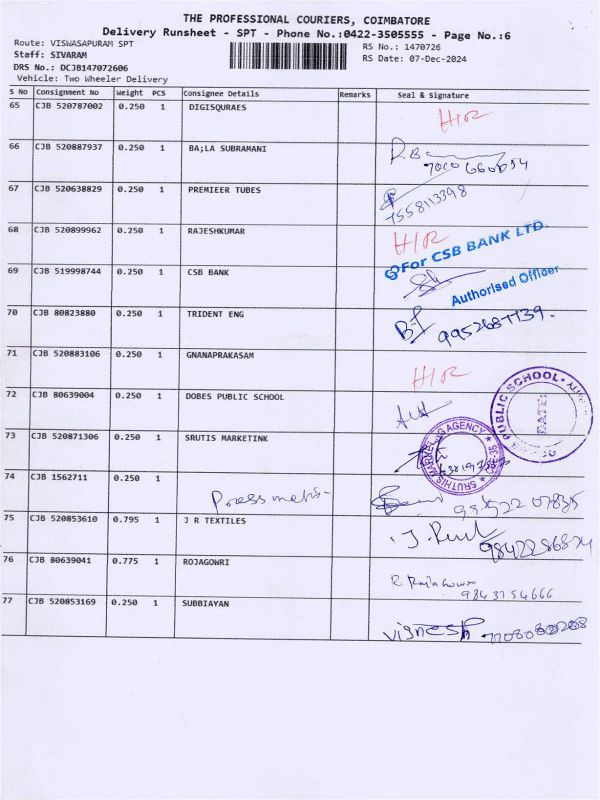 THE PROFESSIONAL COURIERS, COIMBATORE
Delivery Runsheet - SPT - Phone No.:0422-3505555 - Page No.:6
Route: VISWASAPURAM SPT
Staff: SIVARAM
DRS No.: DCJB147072606
Vehicle: Two Wheeler Delivery
RS No.: 1470726
RS Date: 07-Dec-2024
S No Consignment No Weight PCS Consignee Details Remarks Seal & Signature
65 CJB 520787002 0.250 1 DIGISQURAES H/R
66 CJB 520887937 0.250 1 BA¡LA SUBRAMANI
67 CJB 520638829 0.250 1 PREMIEER TUBES 7558113398
68 CJB 520899962 0.250 1 RAJESHKUMAR H/R
For CSB BANK LTD.
69 CJB 519998744 0.250 1 CSB BANK
Authorised Officer
70 CJB 80823880 0.250 1 TRIDENT ENG
71 CJB 520883106 0.250 1 GNANAPRAKASAM H/R
72 CJB 80639004 0.250 1 DOBES PUBLIC SCHOOL
PUBLIC SCHOOL
DATE:
73 CJB 520871306 0.250 1 SRUTIS MARKETINK
SRUTHIS MARKETING AGENCY
74 CJB 1562711 0.250 1
75 CJB 520853610 0.795 1 J R TEXTILES
76 CJB 80639041 0.775 1 ROJAGOWRI
9843754666
77 CJB 520853169 0.250 1 SUBBIAYAN
Vignesh